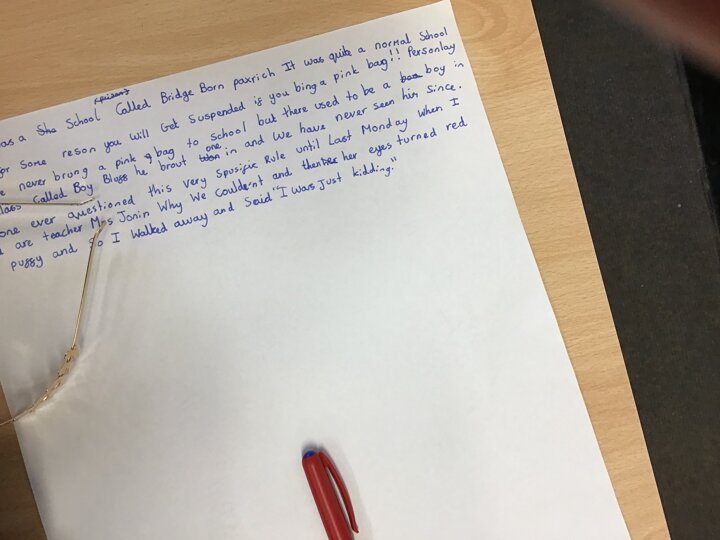 as a She School Called Bridge Born paxrich It was quite a normal School
for Some reson you will Get Suspended if you bing a pink bag!! Personlay
never brung a pink bag to school but there used to be a boy in
lass Called Boy Bluff he brout one in and We have never seen his since.
one ever questioned this very Spusific Rule until Last Monday when I
are teacher Mrs Jonin Why We Couldent and then her eyes turned red
puffy and So I Walked away and Said "I was Just kidding."